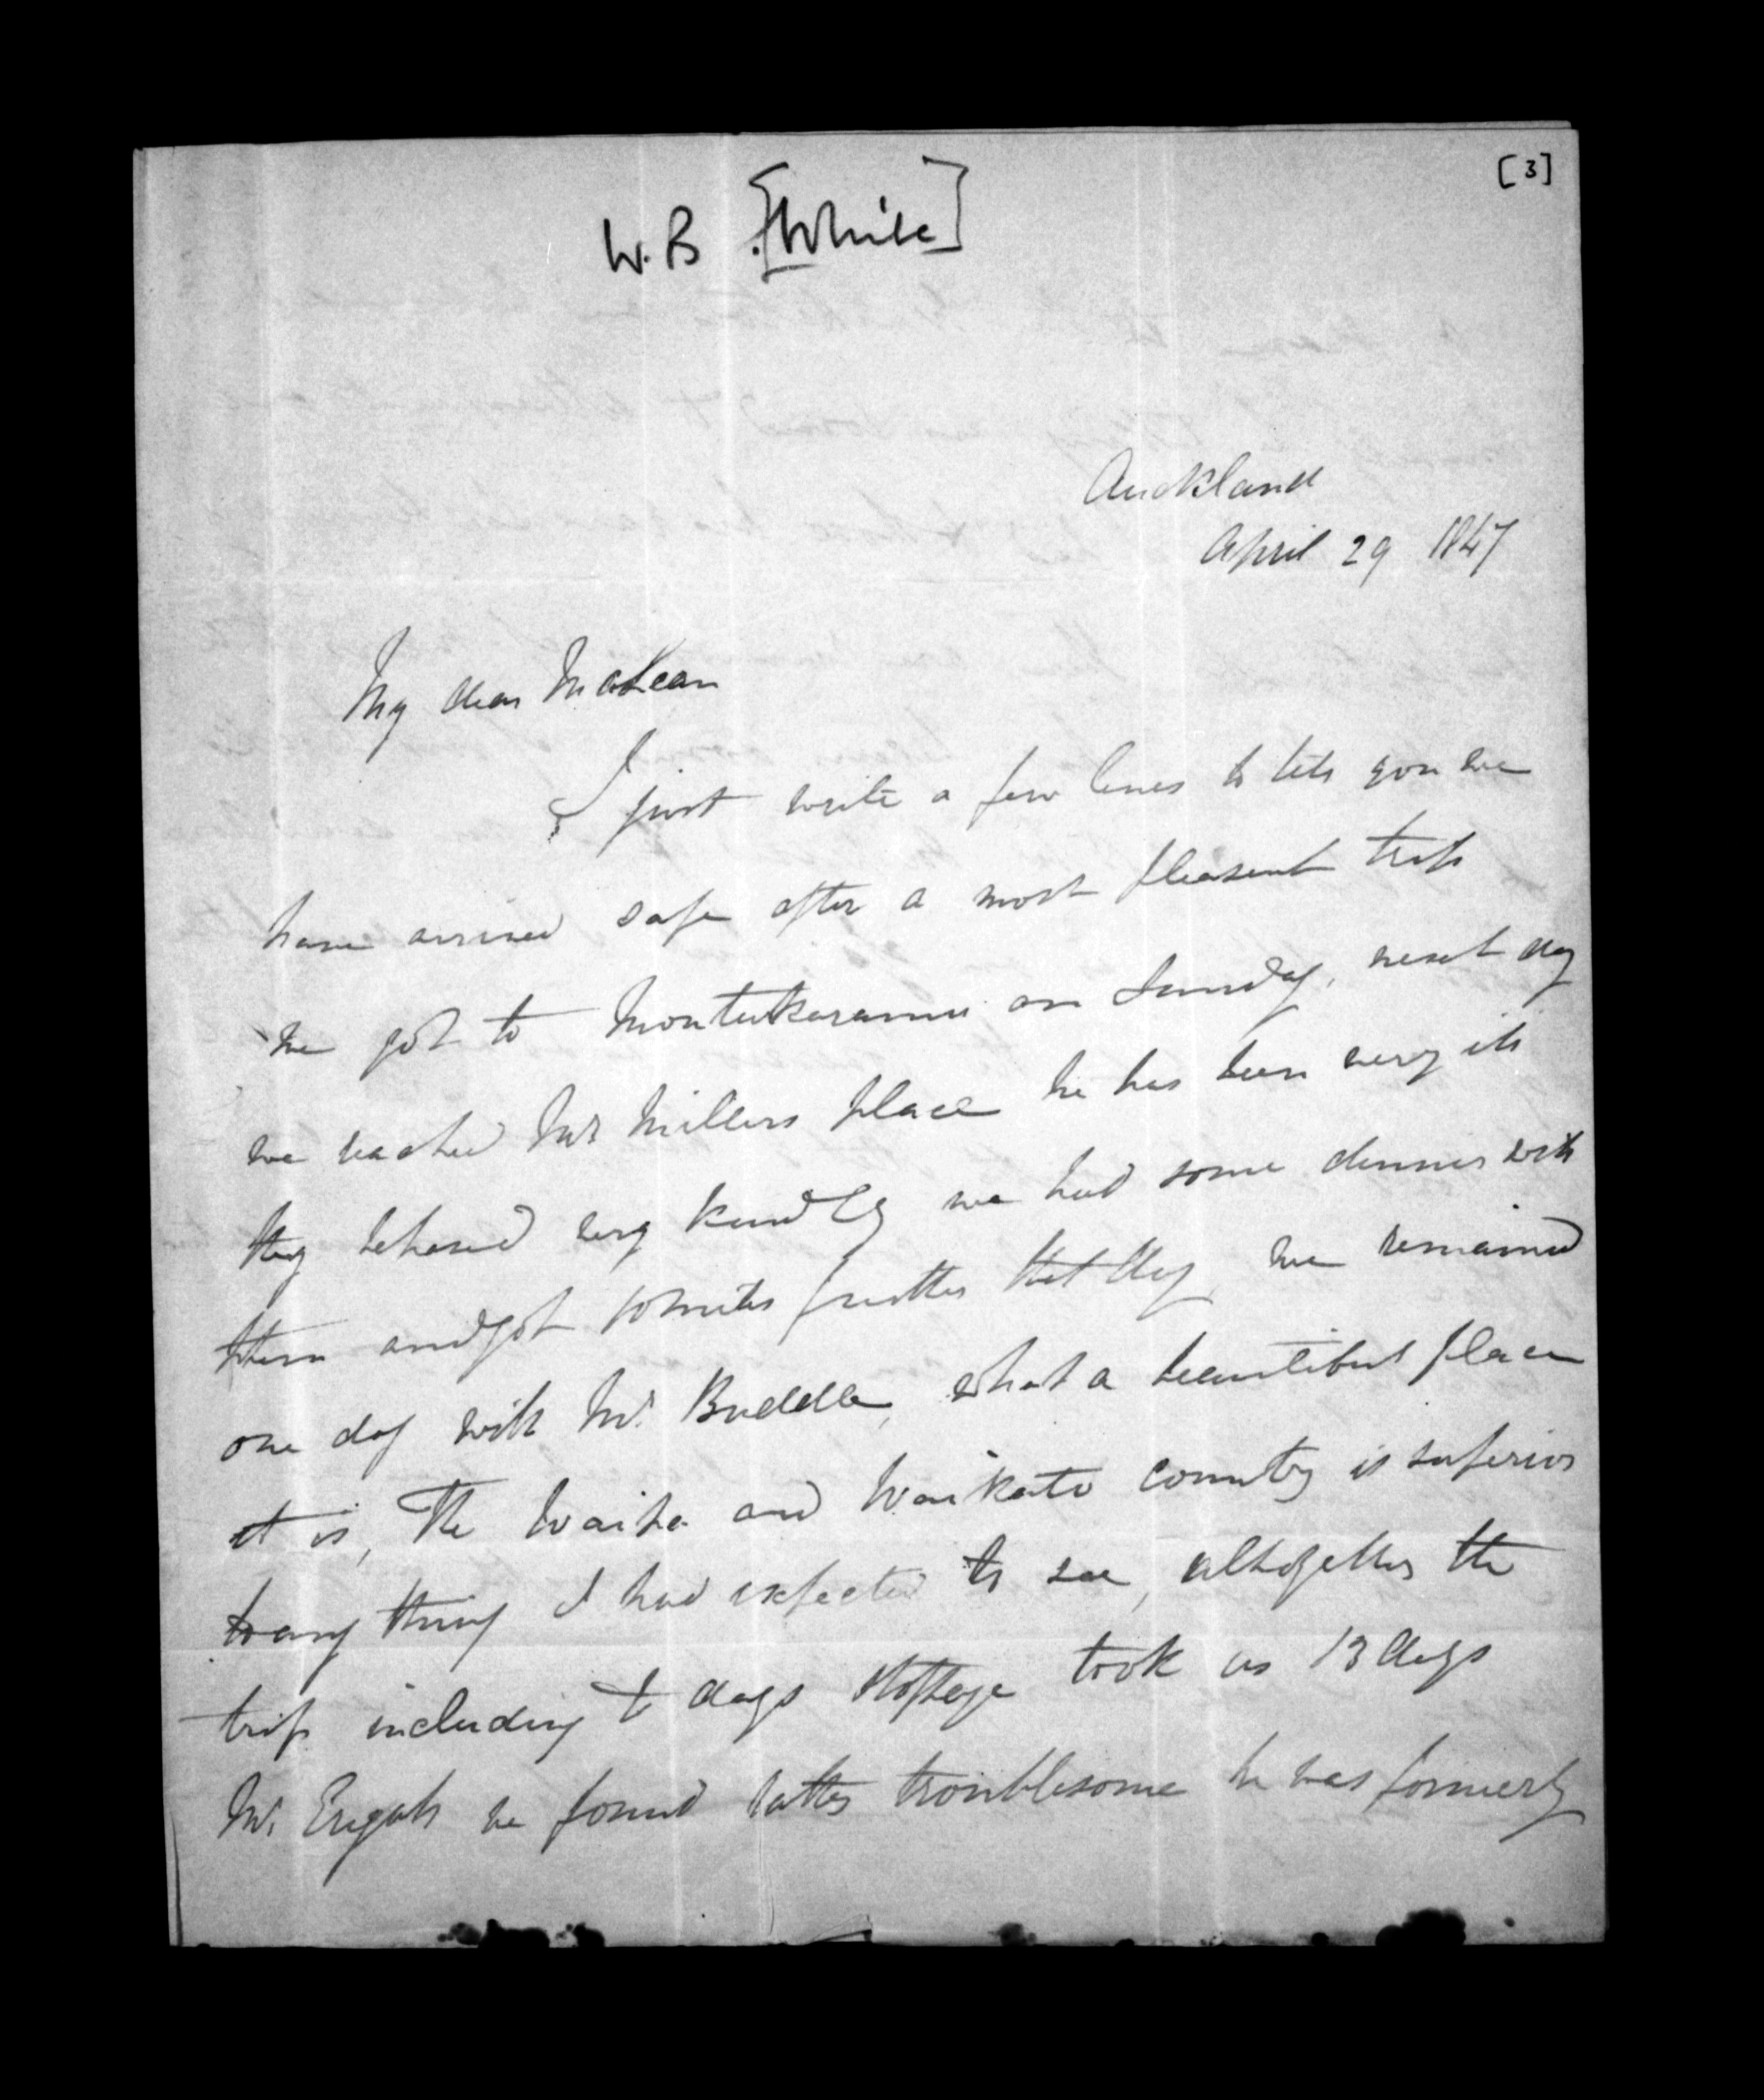 [3]
W. B. [White]
Auckland
April 29 1847
My dear McLean
I just write a few lines to tell you we
have arrived safe after a most pleasent trip
we got to on Sunday, next day
we reached Mr Millers place he has been very ill
they behaved very kindly we had some dinner with
them and got 10 miles further that day, we remained
one day with Mr. Buddle, what a beautiful place
it is, The Waipa and Waikato country is superior
to any thing I had expected to see, altogether the
trip including days stoppage took us 13 days
Mr we found rather troublesome he was formerly